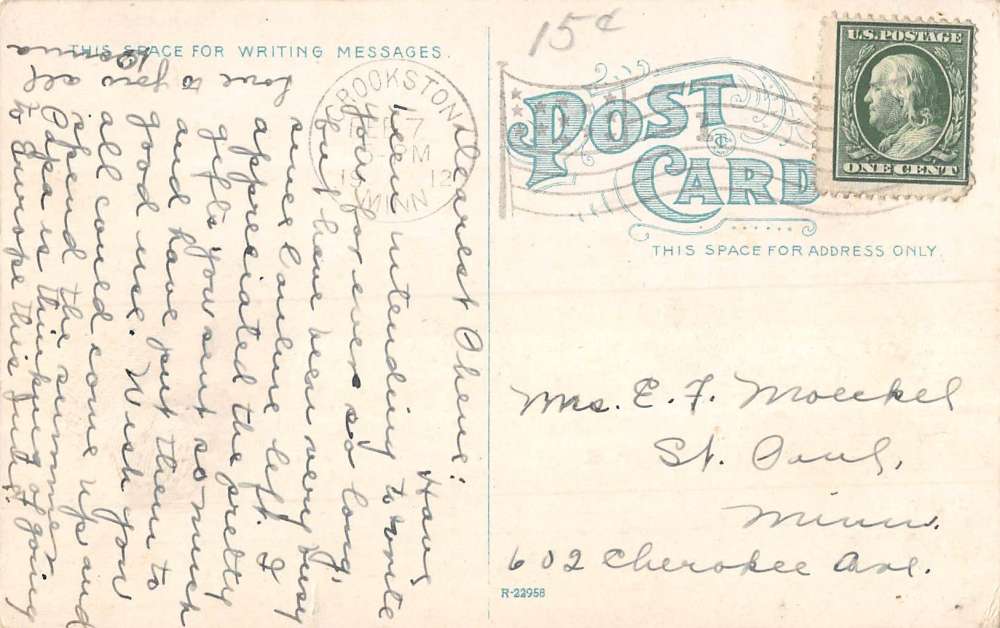 15¢
THIS SPACE FOR WRITING MESSAGES.
POST
CARD
THIS SPACE FOR ADDRESS ONLY.
U.S. POSTAGE
ONE CENT
BROOKSTON
7
PM
1912
MINN
Dearest Oheni:
Have
been intending to write
you for ever so long,
but have been very busy
since Louine left. I
appreciated the pretty
gifts you sent so much
and have put them to
good use. Wish you
all could come up and
spend the summer.
Papa is thinking of going
to Europe this June.
Love to you all
Mrs. E. F. Moeckel
St. Paul,
Minn.
602 Cherokee Ave.
R-22958